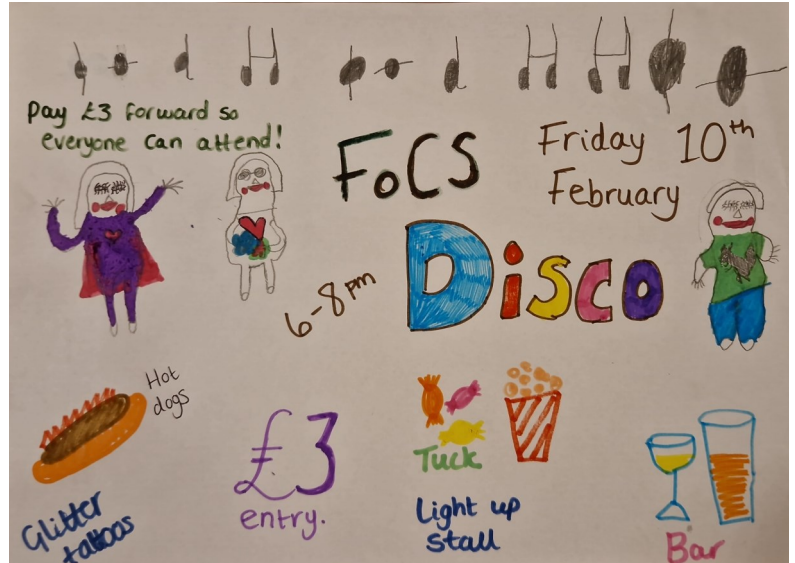 Pay £3 forward so
everyone can attend!
FoCS
Friday 10th
February
6-8pm
Disco
Hot
dogs
£3
entry.
Tuck
Glitter
tattoos
Light up
stall
Bar